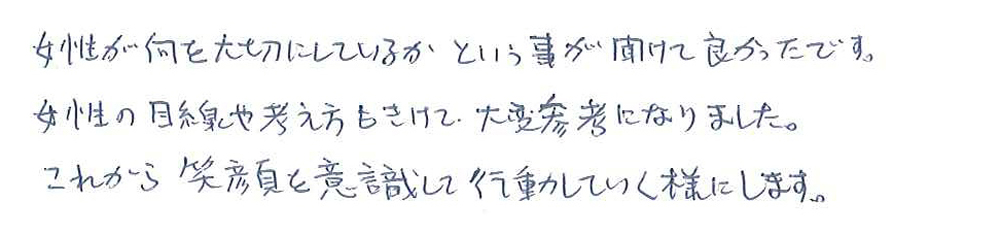 女性が何を大切にしているかという事が聞けて良かったです。
女性の目線や考え方もきけて、大変参考になりました。
これから笑顔を意識して行動していく様にします。